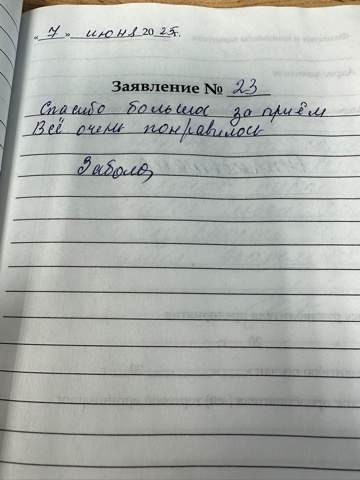 «7» июня 2025г.
Заявление № 23
Спасибо большое за приём
Всё очень понравилось